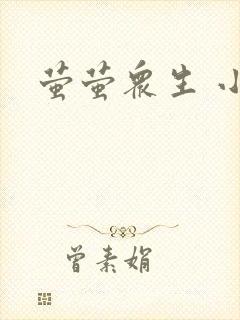 萤萤众生 小
曾素娟